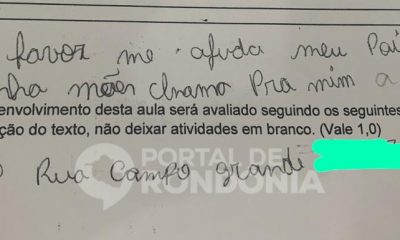 favor me ajuda meu Pai
nha mães chama Pra mim a
envolvimento desta aula será avaliado seguindo os seguintes
ção do texto, não deixar atividades em branco. (Vale 1,0)
PORTAL DE
RONDÔNIA
Rua Campo grande